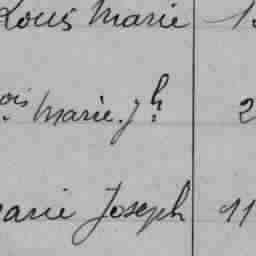 Louis Marie 1
ois Marie. Jh. 2
arie Joseph 11